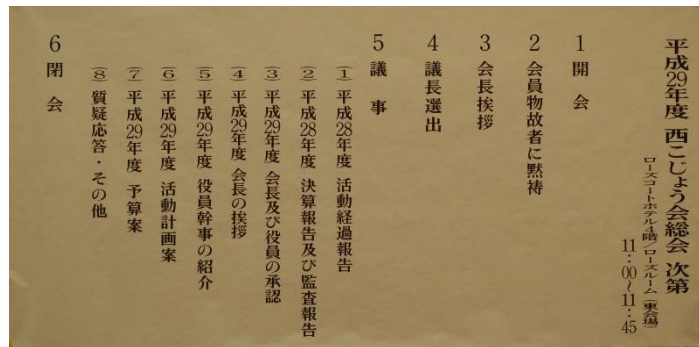 平成29年度 西こじょう会総会 次第
ローズコートホテル4階/ローズルーム(東会場)
11:00~11:45
1 開会
2 会員物故者に黙祷
3 会長挨拶
4 議長選出
5 議事
(1) 平成28年度 活動経過報告
(2) 平成28年度 決算報告及び監査報告
(3) 平成29年度 会長及び役員の承認
(4) 平成29年度 会長の挨拶
(5) 平成29年度 役員幹事の紹介
(6) 平成29年度 活動計画案
(7) 平成29年度 予算案
(8) 質疑応答・その他
6 閉会